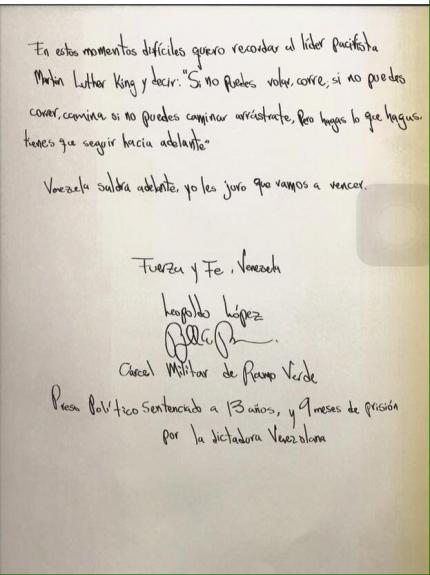 En estos momentos difíciles quiero recordar al líder pacifista
Martin Luther King y decir: "Si no puedes volar, corre, si no puedes
correr, camina, si no puedes caminar arrástrate, Pero hagas lo que hagas,
tienes que seguir hacia adelante"
Venezuela saldrá adelante, yo les juro que vamos a vencer.
Fuerza y Fe, Venezuela
Leopoldo López
Cárcel Militar de Ramo Verde
Preso Político Sentenciado a 13 años, y 9 meses de prisión
por la dictadora Venezolana